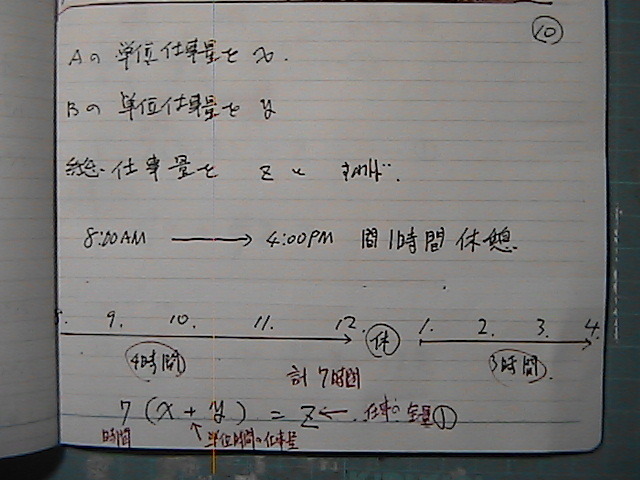 ⑩
Aの 単位仕事量を x.
Bの 単位仕事量を y
総仕事量を z と すれば.
8:00AM → 4:00PM 間1時間休憩.
8. 9. 10. 11. 12. 休 1. 2. 3. 4.
4時間 3時間
計7時間
7 (x + y) = z ← 仕事の全量①
時間 ↑単位時間の仕事量